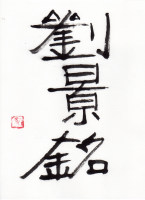 劉景銘